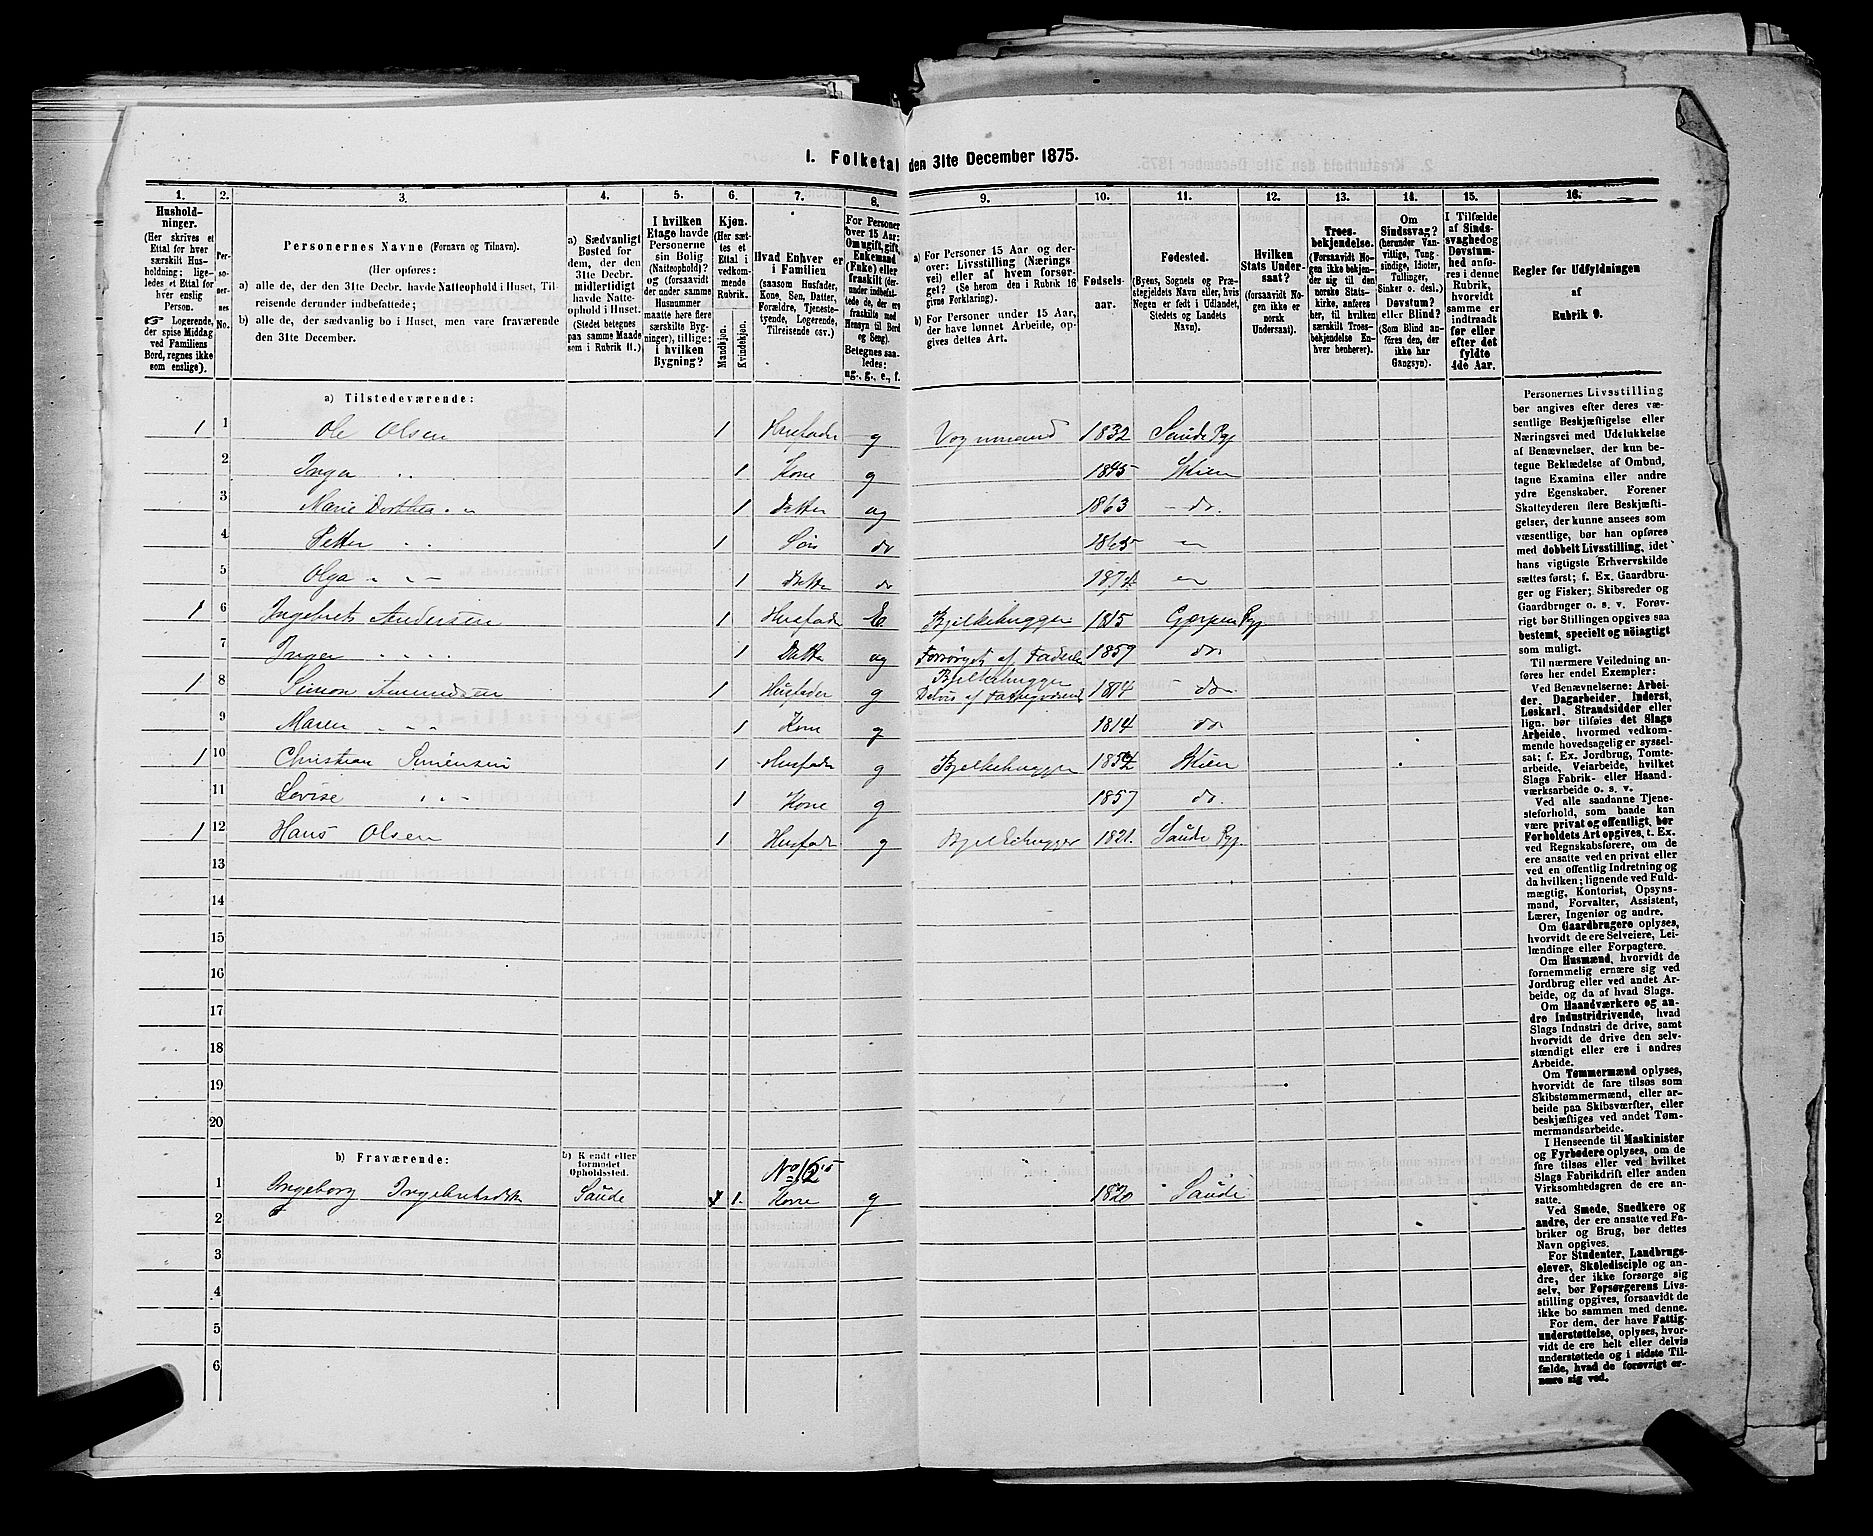 1. Folketal den 31te December 1875.
1. 2. 3. 4. 5. 6. 7. 8. 9. 10. 11. 12. 13. 14. 15. 16.
Hushold-
ninger.
(Her skrives et
Ettal for hver
særskilt Hus-
holdning; lige-
ledes et Ettal for
hver enslig
Person.
☞ Logerende,
der spise Middag
ved Familiens
Bord, regnes ikke
som enslige).
Per-
so-
ner-
nes
No.
Personernes Navne (Fornavn og Tilnavn).
(Her opføres:
a) alle de, der den 31te Decbr. havde Natteophold i Huset, Til-
reisende derunder indbefattede;
b) alle de, der sædvanlig bo i Huset, men vare fraværende
den 31te December.
a) Sædvanligt
Bosted for
dem, der den
31te Decbr.
midlertidigt
havde Natte-
ophold i Huset.
(Stedet betegnes
paa samme Maade
som i Rubrik 11.)
I hvilken
Etage havde
Personerne
sin Bolig
(Natteophold)?
og (forsaavidt
der under samme
Husnummer
maatte høre flere
særskilte Byg-
ninger), tillige:
i hvilken
Bygning?
Kjøn.
(Her sæt-
tes et
Ettal i
vedkom-
mende
Rubrik.
Mandkjøn.
Kvindekjøn.
Hvad Enhver er
i Familien
(saasom Husfader,
Kone, Søn, Datter,
Forældre, Tjeneste-
tyende, Logerende,
Tilreisende osv.)
For Personer
over 15 Aar:
Om ugift, gift,
Enkemand
(Enke) eller
fraskilt (der-
under indbefat-
tede de, der ere
fraskilte med
Hensyn til Bord
og Seng).
Betegnes saa-
ledes:
ug., g., e., f.
a) For Personer 15 Aar og der-
over: Livsstilling (Nærings-
vei) eller af hvem forsør-
get? (Se herom den i Rubrik 16
givne Forklaring).
b) For Personer under 15 Aar,
der have lønnet Arbeide, op-
gives dettes Art.
Fødsels-
aar.
Fødested.
(Byens, Sognets og Præ-
stegjeldets Navn eller, hvis
Nogen er født i Udlandet,
Stedets og Landets
Navn).
Hvilken
Stats Under-
saat?
(forsaavidt No-
gen ikke er
norsk
Undersaat).
Troes-
bekjendelse.
(Forsaavidt No-
gen ikke bekjen-
der sig til den
norske Stats-
kirke, anføres
her, til hvilken
særskilt Troes-
bekjendelse En-
hver henhører).
Om
Sindssvag?
(herunder Van-
vittige, Tung-
sindige, Idioter,
Tullinger,
Sinker o. desl.)
Døvstum?
eller Blind?
(Som Blind an-
føres den, der
ikke har
Gangsyn).
I Tilfælde
af Sinds-
svaghed og
Døvstum-
hed anfø-
res i denne
Rubrik,
hvorvidt
samme er
indtraadt
før eller
efter det
fyldte
4de Aar.
Regler for Udfyldningen
af
Rubrik 9.
a) Tilstedeværende:
1 1 Ole Olsen 1 Husfader g Vognmand 1832 Saude Pgj
2 Inga " " 1 Kone g 1845 Skien
3 Marie Dorthea " " 1 Datter ug 1863 - do.
4 Petter " " 1 Søn do 1865 "
5 Olga " " - 1 Datter do "
1 6 Ingebret Andersen 1 Husfader E. Bjelkehugger 1815 Gjerpen Pgj
7 Inger " " " " 1 Datter ug Forsørget af Faderen 1859 do
1 8 Simon Amundsen 1 Husfader g Bjelkehugger
Delvis af Fattigvæsenet 1814 - do -
9 Maren " " " 1 Kone g 1814 do
1 10 Christian Simensen 1 Husfader g Bjelkehugger Skien
11 Lovise " " - 1 Kone g 1857 do.
1 12 Hans Olsen 1 Husfader g Bjelkehugger 1821. Saude Pgj.
13
14
15
16
17
18
19
20
b) Fraværende:
b) Kjendt eller
formodet
Opholdssted.
1 Ingeborg Ingebretsdtr Saude 1. Kone g 1820 Saude
2
3
4
5
6
Personernes Livsstilling
bør angives efter deres væ-
sentlige Beskjæftigelse eller
Næringsvei med Udelukkelse
af Benævnelser, der kun be-
tegne Beklædelse af Ombud,
tagne Examina eller andre
ydre Egenskaber. Forener
Skatteyderen flere Beskjæfti-
gelser, der kunne ansees som
væsentlige, bør han opføres
med dobbelt Livsstilling, idet
hans vigtigste Erhvervskilde
sættes først; f. Ex. Gaardbru-
ger og Fisker; Skibsreder og
Gaardbruger o. s. v. Forøv-
rigt bør Stillingen opgives saa
bestemt, specielt og nöiagtigt
som muligt.
Til nærmere Veiledning an-
føres her endel Exempler:
Ved Benævnelserne: Arbei-
der, Dagarbeider, Inderst,
Løskarl, Strandsidder eller
lign. bør tilføies det Slags
Arbeide, hvormed vedkom-
mende hovedsagelig er syssel-
sat; f. Ex. Jordbrug, Tomte-
arbeide, Veiarbeide, hvilket
Slags Fabrik- eller Haand-
værksarbeide o. s. v.
Ved alle saadanne Tjene-
steforhold, som baade kan
være privat og offentligt, bør
Forholdets Art opgives, t. Ex.
ved Regnskabsførere, om de
ere ansatte ved en privat eller
ved en offentlig Indretning og
da hvilken; lignende ved Fuld-
mægtig, Kontorist, Opsyns-
mand, Forvalter, Assistent,
Lærer, Ingeniør og andre.
Om Gaardbrugere oplyses,
hvorvidt de ere Selveiere, Lei-
lændinge eller Forpagtere.
Om Husmænd, hvorvidt de
fornemmelig ernære sig ved
Jordbrug eller ved andet Ar-
beide, og da af hvad Slags.
Om Haandværkere og an-
dre Industridrivende, hvad
Slags Industri de drive, samt
hvorvidt de drive den selv-
stændigt eller ere i andres
Arbeide.
Om Tømmermænd oplyses,
hvorvidt de fare tilsøs som
Skibstømmermænd, eller ar-
beide paa Skibsværfter, eller
beskjæftiges ved andet Tøm-
mermandsarbeide.
I Henseende til Maskinister
og Fyrbødere oplyses, om de
fare tilsøs eller ved hvilket
Slags Fabrikdrift eller anden
Virksomhedsgren de ere an-
satte.
Ved Smede, Snedkere og
andre, der ere ansatte ved Fa-
briker og Brug, bør dettes
Navn opgives.
For Studenter, Landbrugs-
elever, Skoledisciple og an-
dre, der ikke forsørge sig
selv, bør Forsørgerens Livs-
stilling opgives, forsaavidt de
ikke bo sammen med denne.
For dem, der have Fattig-
understøttelse, oplyses, hvor-
vidt de ere helt eller delvis
understøttede og i sidste Til-
fælde, hvad de forøvrigt er-
nære sig ved.